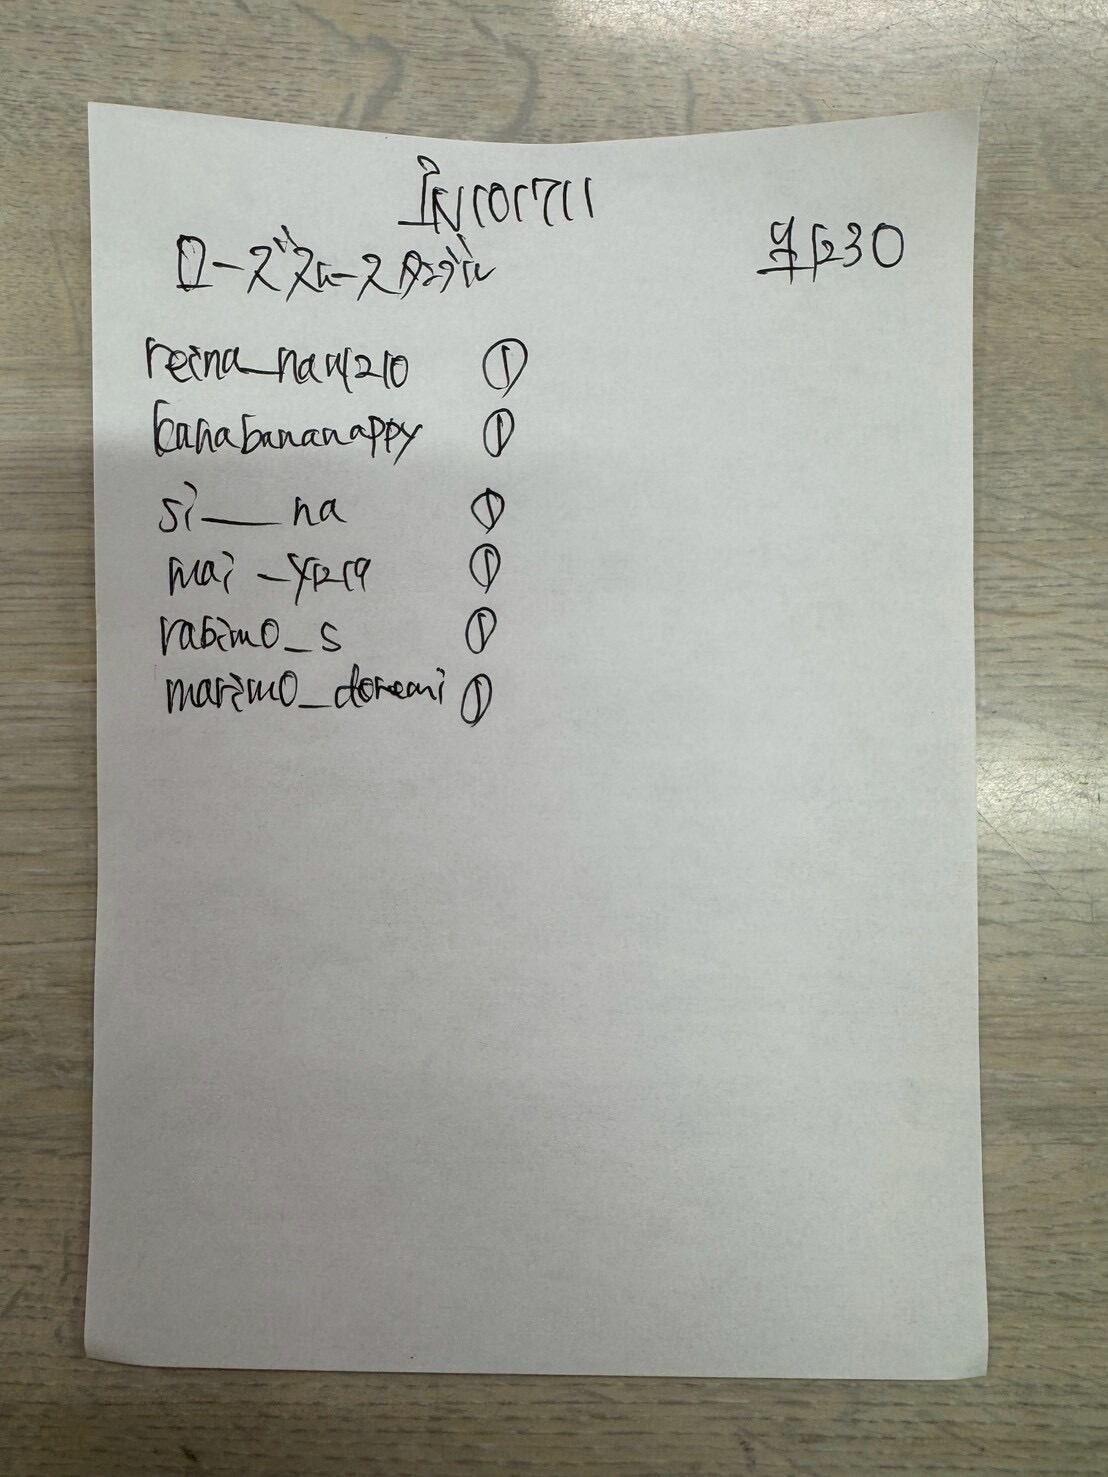 IN101711
ローズスムースタッグル
reina_nau1210 ①
bahabananappy ①
si___na ①
mai_y1219 ①
rabimo_s ①
marimo_doremi ①